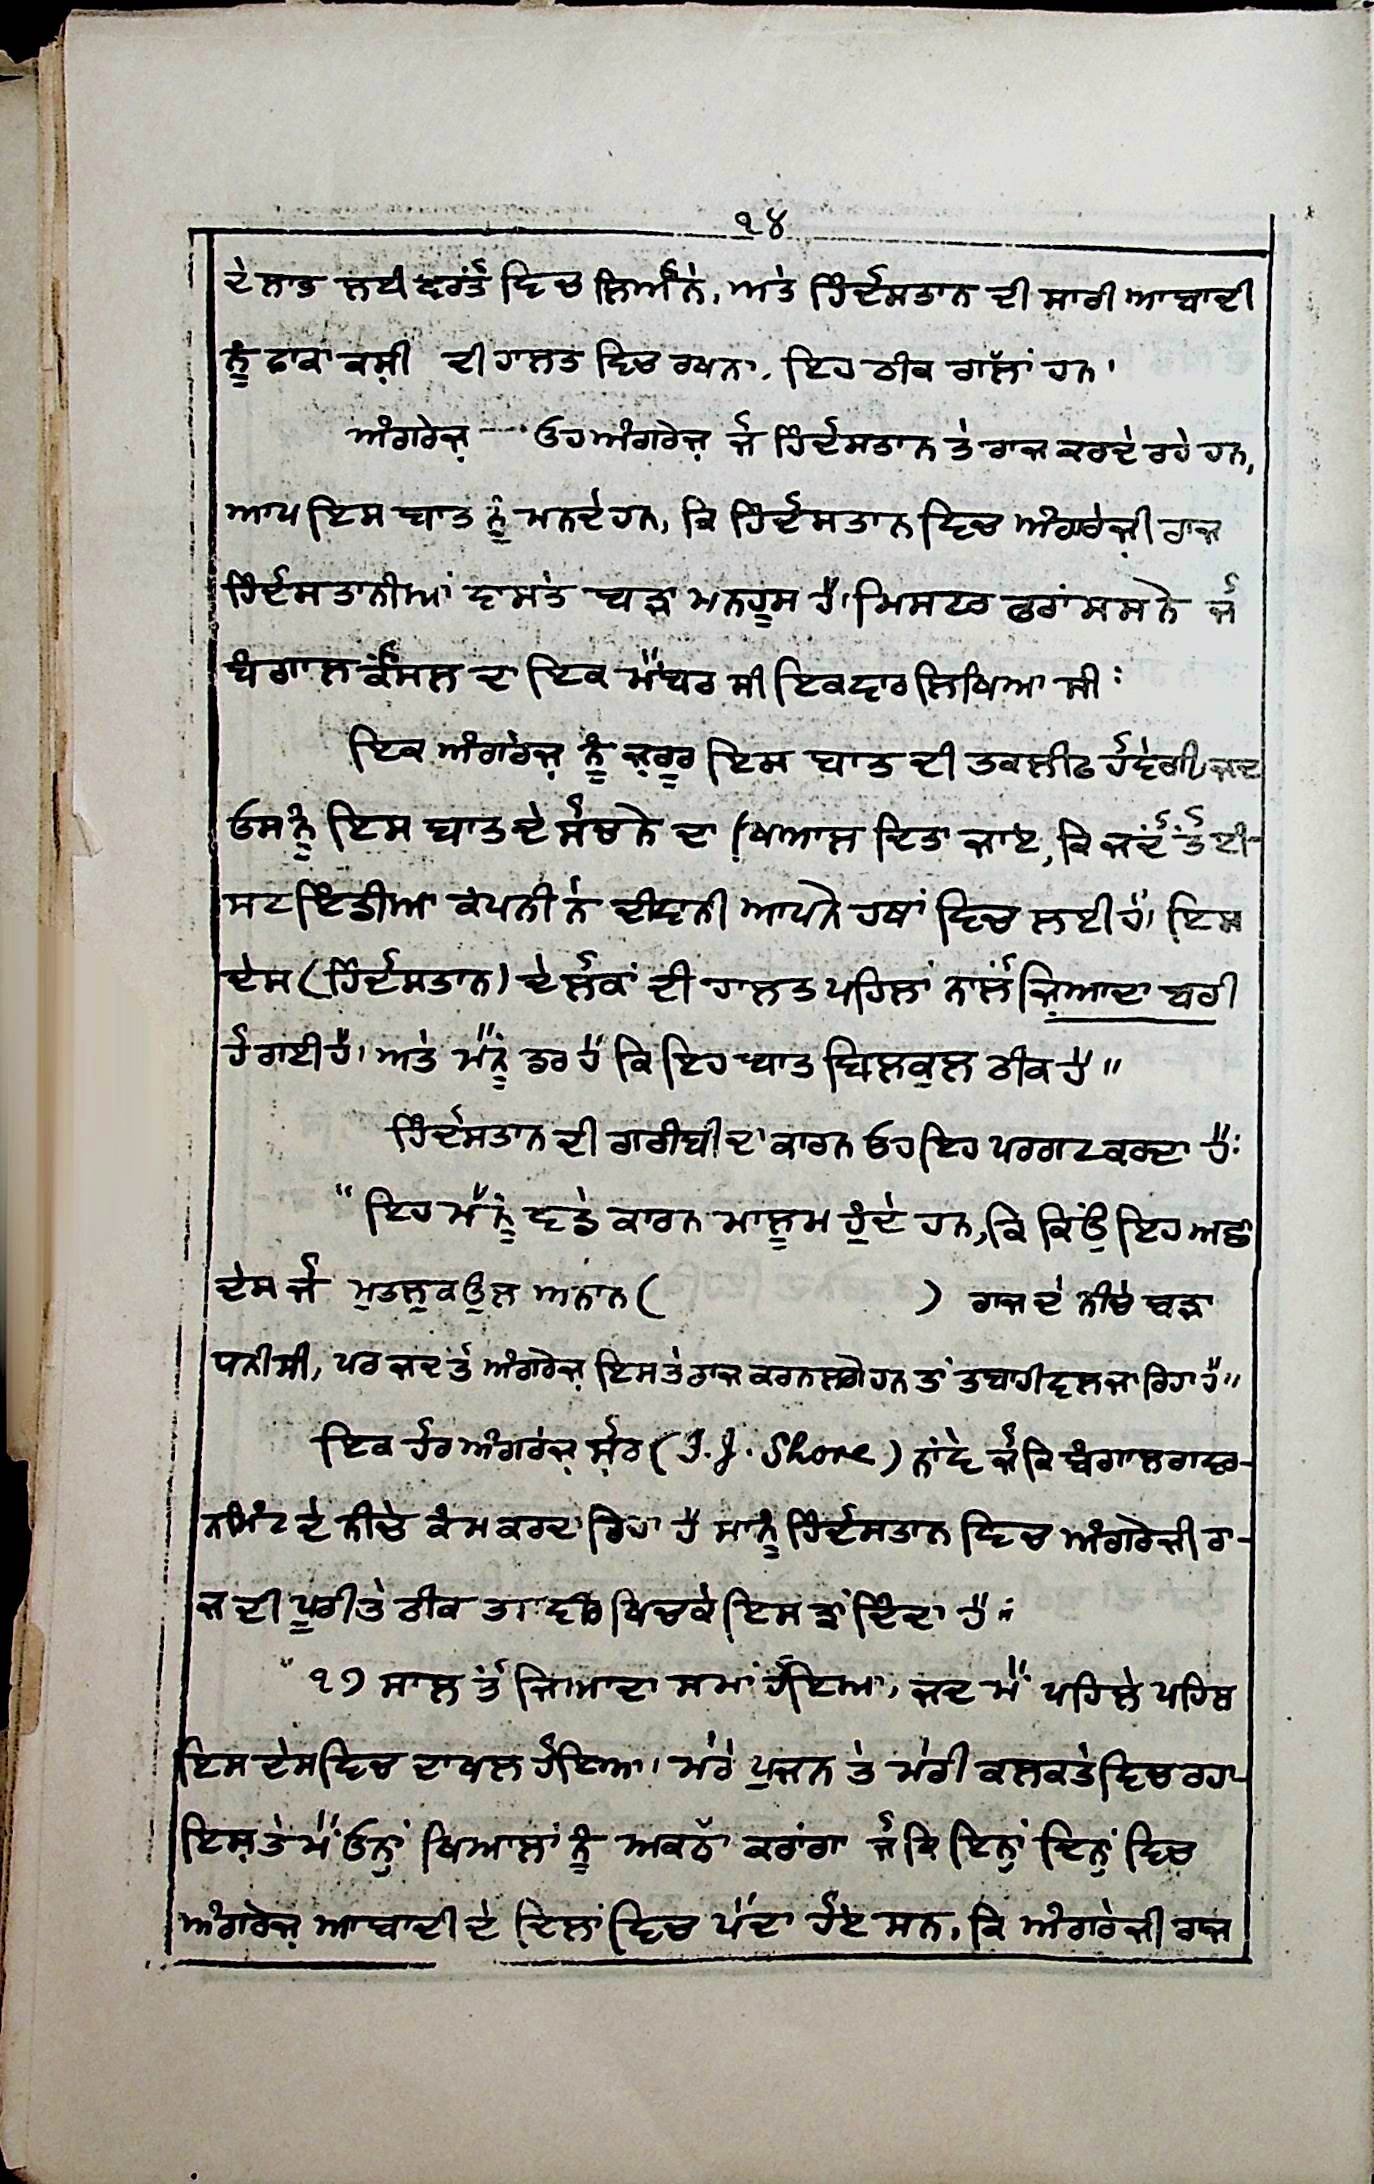 ੧੪
ਦੇ ਲਾਭ ਲਈ ਵਰਤੋਂ ਵਿਚ ਲਿਔਨੇ, ਅਤੇ ਹਿੰਦੋਸਤਾਨ ਦੀ ਸਾਰੀ ਆਬਾਦੀ
ਨੂੰ ਫਾਕਾ ਕਸ਼ੀ ਦੀ ਹਾਲਤ ਵਿਚ ਰਖਨਾ, ਇਹ ਠੀਕ ਗਲਾਂ ਹਨ।
ਅੰਗਰੇਜ਼ — ਓਹ ਅੰਗਰੇਜ਼ ਜੋ ਹਿੰਦੋਸਤਾਨ ਤੇ ਰਾਜ ਕਰਦੇ ਰਹੇ ਹਨ,
ਆਪ ਇਸ ਬਾਤ ਨੂੰ ਮਨਦੇ ਹਨ, ਕਿ ਹਿੰਦੋਸਤਾਨ ਵਿਚ ਅੰਗਰੇਜ਼ੀ ਰਾਜ
ਹਿੰਦੋਸਤਾਨੀਆਂ ਵਾਸਤੇ ਬੜਾ ਮਨਹੂਸ ਹੈ। ਮਿਸਟਰ ਫਰਾਂਸਸ ਨੇ ਜੋ
ਬੰਗਾਲ ਕੌਂਸਲ ਦਾ ਇਕ ਮੈਂਬਰ ਸੀ ਇਕਵਾਰ ਲਿਖਿਆ ਸੀ:
ਇਕ ਅੰਗਰੇਜ਼ ਨੂੰ ਜ਼ਰੂਰ ਇਸ ਬਾਤ ਦੀ ਤਕਲੀਫ ਹੋਵੇਗੀ, ਜਦ
ਓਸ ਨੂੰ ਇਸ ਬਾਤ ਦੇ ਸੋਚਨੇ ਦਾ ਖ਼ਿਆਲ ਦਿਤਾ ਜਾਏ, ਕਿ ਜਦੋਂ ਤੋਂ ਈ-
ਸਟ ਇੰਡੀਆ ਕੰਪਨੀ ਨੇ ਦੀਵਾਨੀ ਆਪਨੇ ਹਥਾਂ ਵਿਚ ਲਈ ਹੈ, ਇਸ
ਦੇਸ (ਹਿੰਦੋਸਤਾਨ) ਦੇ ਲੋਕਾਂ ਦੀ ਹਾਲਤ ਪਹਿਲਾਂ ਨਾਲੋਂ ਜ਼ਿਆਦਾ ਬੁਰੀ
ਹੋ ਗਈ ਹੈ। ਅਤੇ ਮੈਂਨੂੰ ਡਰ ਹੈ ਕਿ ਇਹ ਬਾਤ ਬਿਲਕੁਲ ਠੀਕ ਹੈ"
ਹਿੰਦੋਸਤਾਨ ਦੀ ਗਰੀਬੀ ਦਾ ਕਾਰਨ ਓਹ ਇਹ ਪਰਗਟ ਕਰਦਾ ਹੈ:
"ਇਹ ਮੈਂਨੂੰ ਵਡੇ ਕਾਰਨ ਮਾਲੂਮ ਹੁੰਦੇ ਹਨ, ਕਿ ਕਿਂਉ ਇਹ ਅਛਾ
ਦੇਸ ਜੋ ਮੁਤਲੂਕਉਲ ਅਨਾਨ ( ) ਰਾਜ ਦੇ ਨੀਚੇ ਬੜਾ
ਧਨੀ ਸੀ, ਪਰ ਜਦ ਤੋਂ ਅੰਗਰੇਜ਼ ਇਸ ਤੇ ਰਾਜ ਕਰਨ ਲਗੇ ਹਨ ਤਾਂ ਤਬਾਹੀ ਵਲ ਜਾ ਰਿਹਾ ਹੈ"
ਇਕ ਹੋਰ ਅੰਗਰੇਜ਼ ਸ਼ੋਰ (J. J. Shore) ਨਾਂਵੇ ਜੋ ਕਿ ਬੰਗਾਲ ਗਾਵਰ-
ਨਮਿੰਟ ਦੇ ਨੀਚੇ ਕੰਮ ਕਰਦਾ ਰਿਹਾ ਹੈ ਸਾਨੂੰ ਹਿੰਦੋਸਤਾਨ ਵਿਚ ਅੰਗਰੇਜ਼ੀ ਰਾ-
ਜ ਦੀ ਪੂਰੀ ਤੇ ਠੀਕ ਤਸਵੀਰ ਖਿਚਕੇ ਇਸ ਤਰਾਂ ਦਿੰਦਾ ਹੈ:
"੧੭ ਸਾਲ ਤੋਂ ਜ਼ਿਆਦਾ ਸਮਾਂ ਹੋਇਆ, ਜਦ ਮੈਂ ਪਹਿਲੇ ਪਹਿਲ
ਇਸ ਦੇਸ ਵਿਚ ਦਾਖਲ ਹੋਇਆ। ਮੇਰੇ ਪੁਜਨ ਤੇ ਮੇਰੀ ਕਲਕਤੇ ਵਿਚ ਰਹਾ-
ਇਸ਼ ਤੇ ਮੈਂ ਓਨ੍ਹਾਂ ਖਿਆਲਾਂ ਨੂੰ ਅਕਠਾ ਕਰਾਂਗਾ ਜੋ ਕਿ ਇਨ੍ਹਾਂ ਦਿਨ੍ਹਾਂ ਵਿਚ
ਅੰਗਰੇਜ਼ ਆਬਾਦੀ ਦੇ ਦਿਲਾਂ ਵਿਚ ਪੈਦਾ ਹੋਏ ਸਨ, ਕਿ ਅੰਗਰੇਜ਼ੀ ਰਾਜ